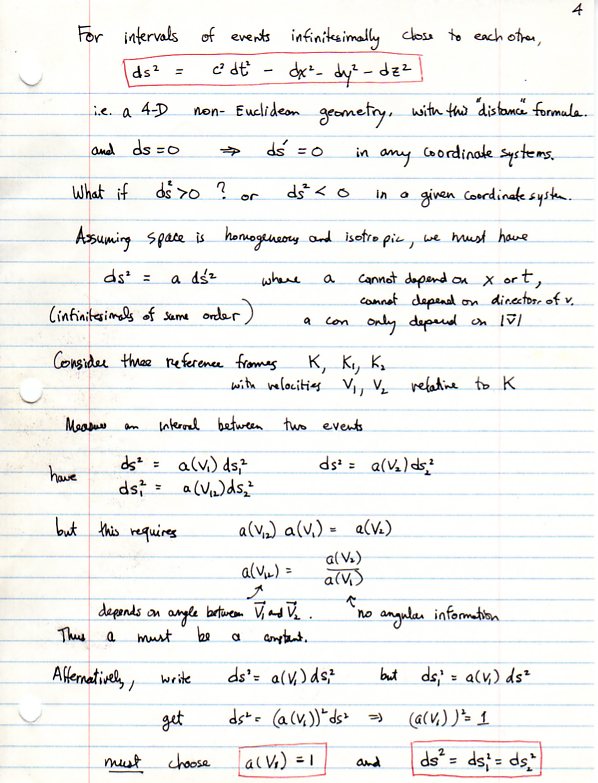 4
For intervals of events infinitesimally close to each other,
ds² = c² dt² - dx² - dy² - dz²
i.e. a 4-D non-Euclidean geometry, with this "distance" formula.
and ds = 0 ⇒ ds' = 0 in any coordinate systems.
What if ds² > 0 ? or ds² < 0 in a given coordinate system.
Assuming space is homogeneous and isotropic, we must have
ds² = a ds'² where a cannot depend on x or t,
cannot depend on direction of v.
(infinitesimals of same order) a can only depend on |v⃗|
Consider three reference frames K, K₁, K₂
with velocities V₁, V₂ relative to K
Measure an interval between two events
have ds² = a(V₁) ds₁² ds² = a(V₂) ds₂²
ds₁² = a(V₁₂) ds₂²
but this requires a(V₁₂) a(V₁) = a(V₂)
a(V₁₂) = a(V₂) / a(V₁)
depends on angle between V⃗₁ and V⃗₂. no angular information
Thus a must be a constant.
Alternatively, write ds² = a(V₁) ds₁² but ds₁² = a(V₁) ds²
get ds² = (a(V₁))² ds² ⇒ (a(V₁))² = 1
must choose a(V₁) = 1 and ds² = ds₁² = ds₂²